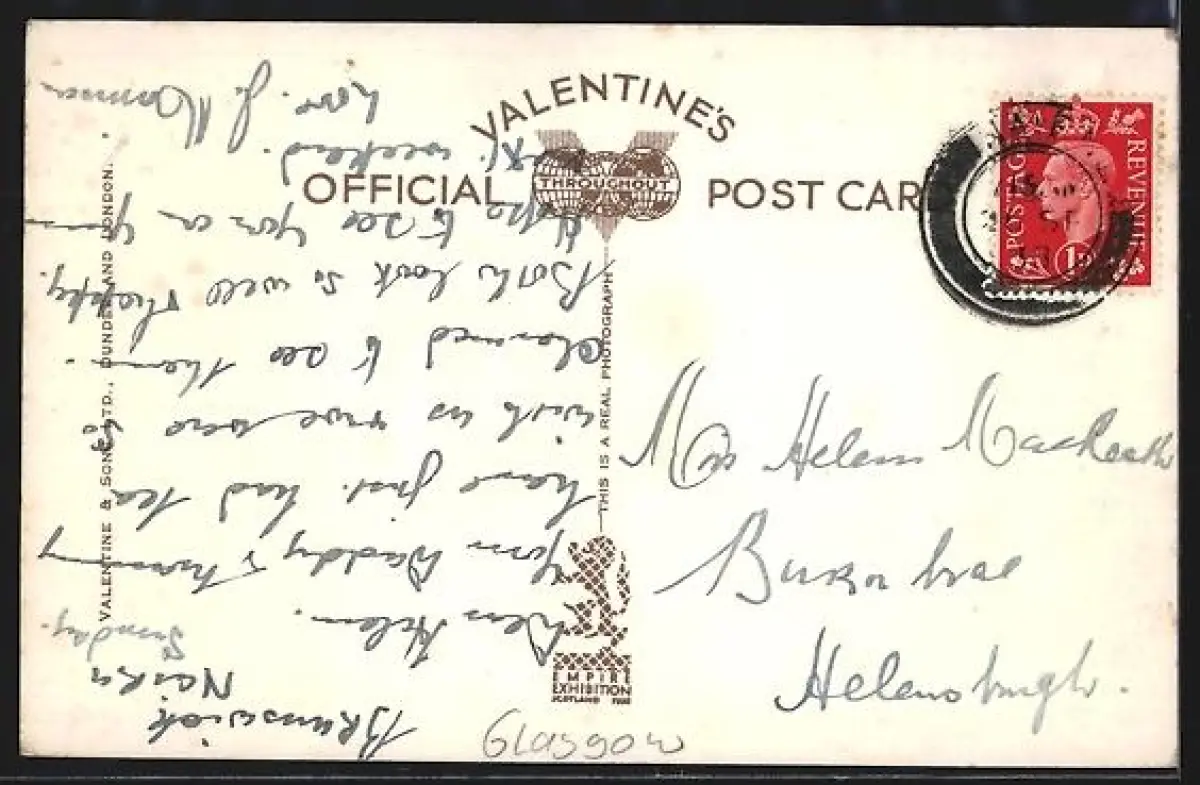 VALENTINE'S
THROUGHOUT
OFFICIAL POST CAR
POSTAGE REVENUE
1D
THIS IS A REAL PHOTOGRAPH
VALENTINE & SONS, LTD., DUNDEE AND LONDON.
EMPIRE
EXHIBITION
SCOTLAND 1938
Brunswick
Nairn
Sunday.
Dear Helen.
Your Daddy & Mummy
have just had tea
with us & we were so
pleased to see them.
Both look so well & happy.
Hope to see you a
weekend.
Love. J.
Mrs Helen
Burn brae
Helensburgh.
Glasgow